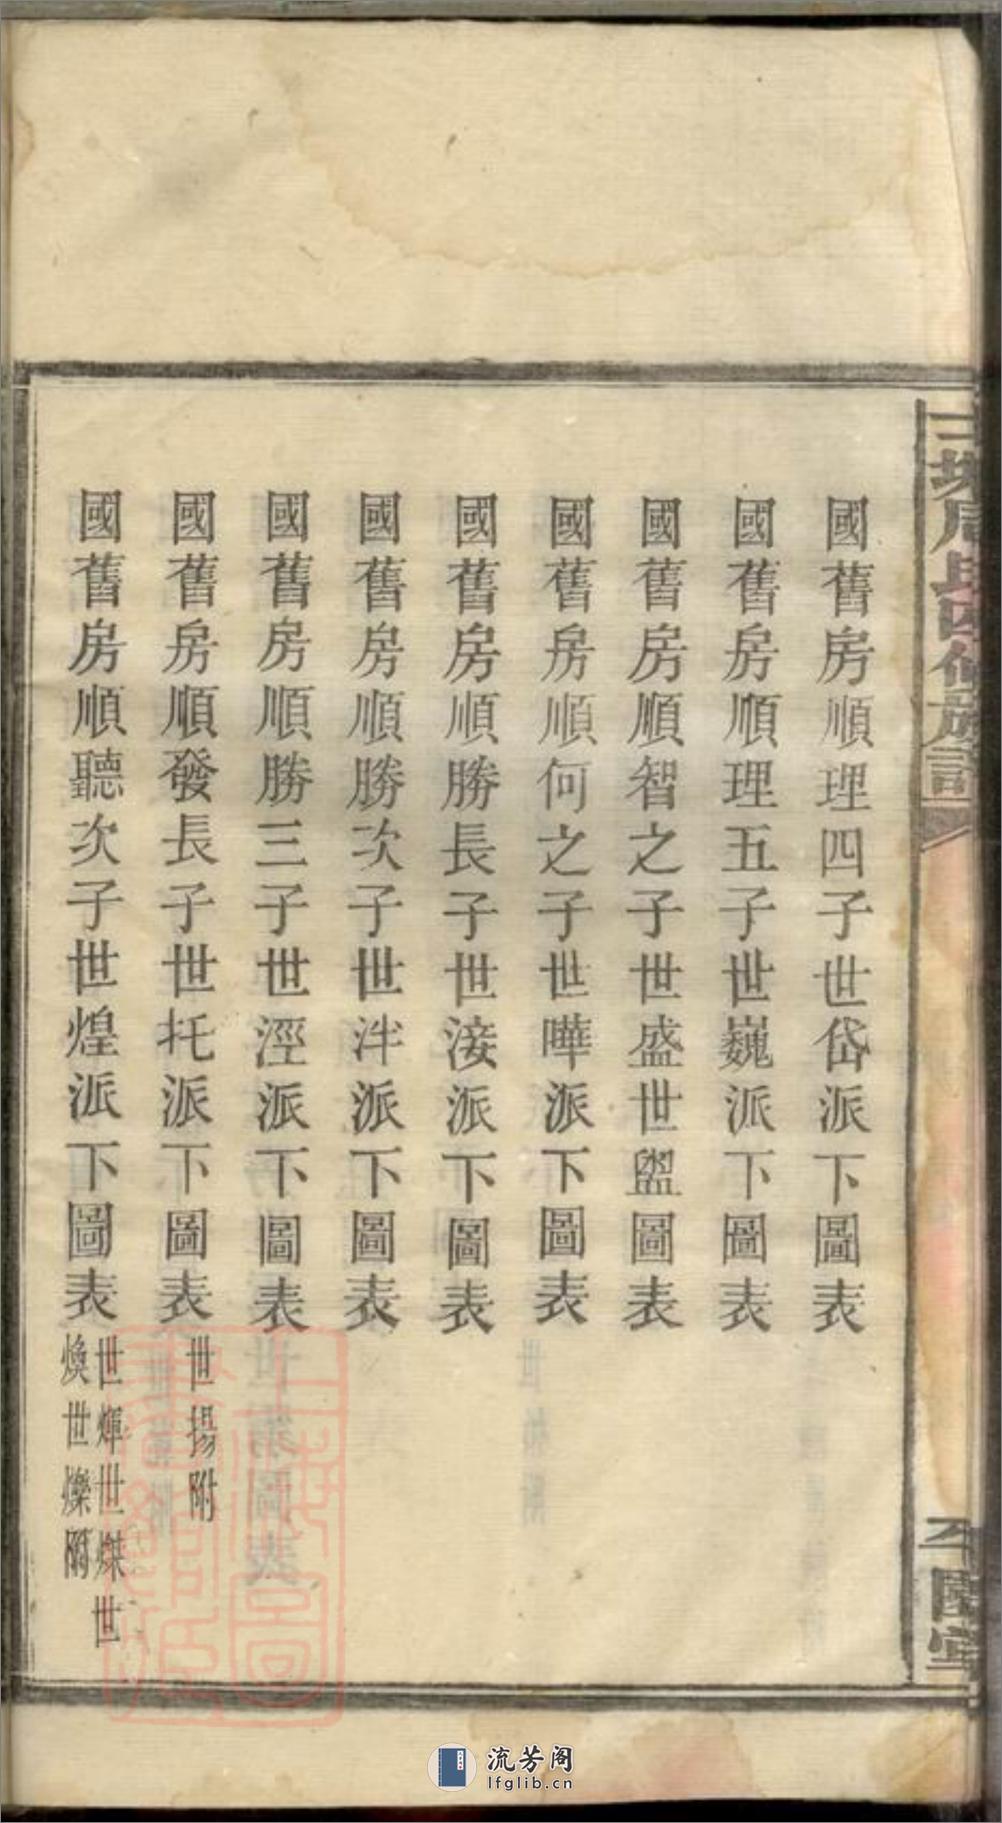 國舊房順理四子世岱派下圖表
國舊房順理五子世巍派下圖表
國舊房順智之子世盛世盥圖表
國舊房順何之子世曄派下圖表
國舊房順勝長子世淁派下圖表
國舊房順勝次子世泮派下圖表
國舊房順勝三子世涇派下圖表
國舊房順發長子世托派下圖表
世揚附
國舊房順聽次子世煌派下圖表
世煇世燦世
煥世爍附
流芳阁
lfglib.cn